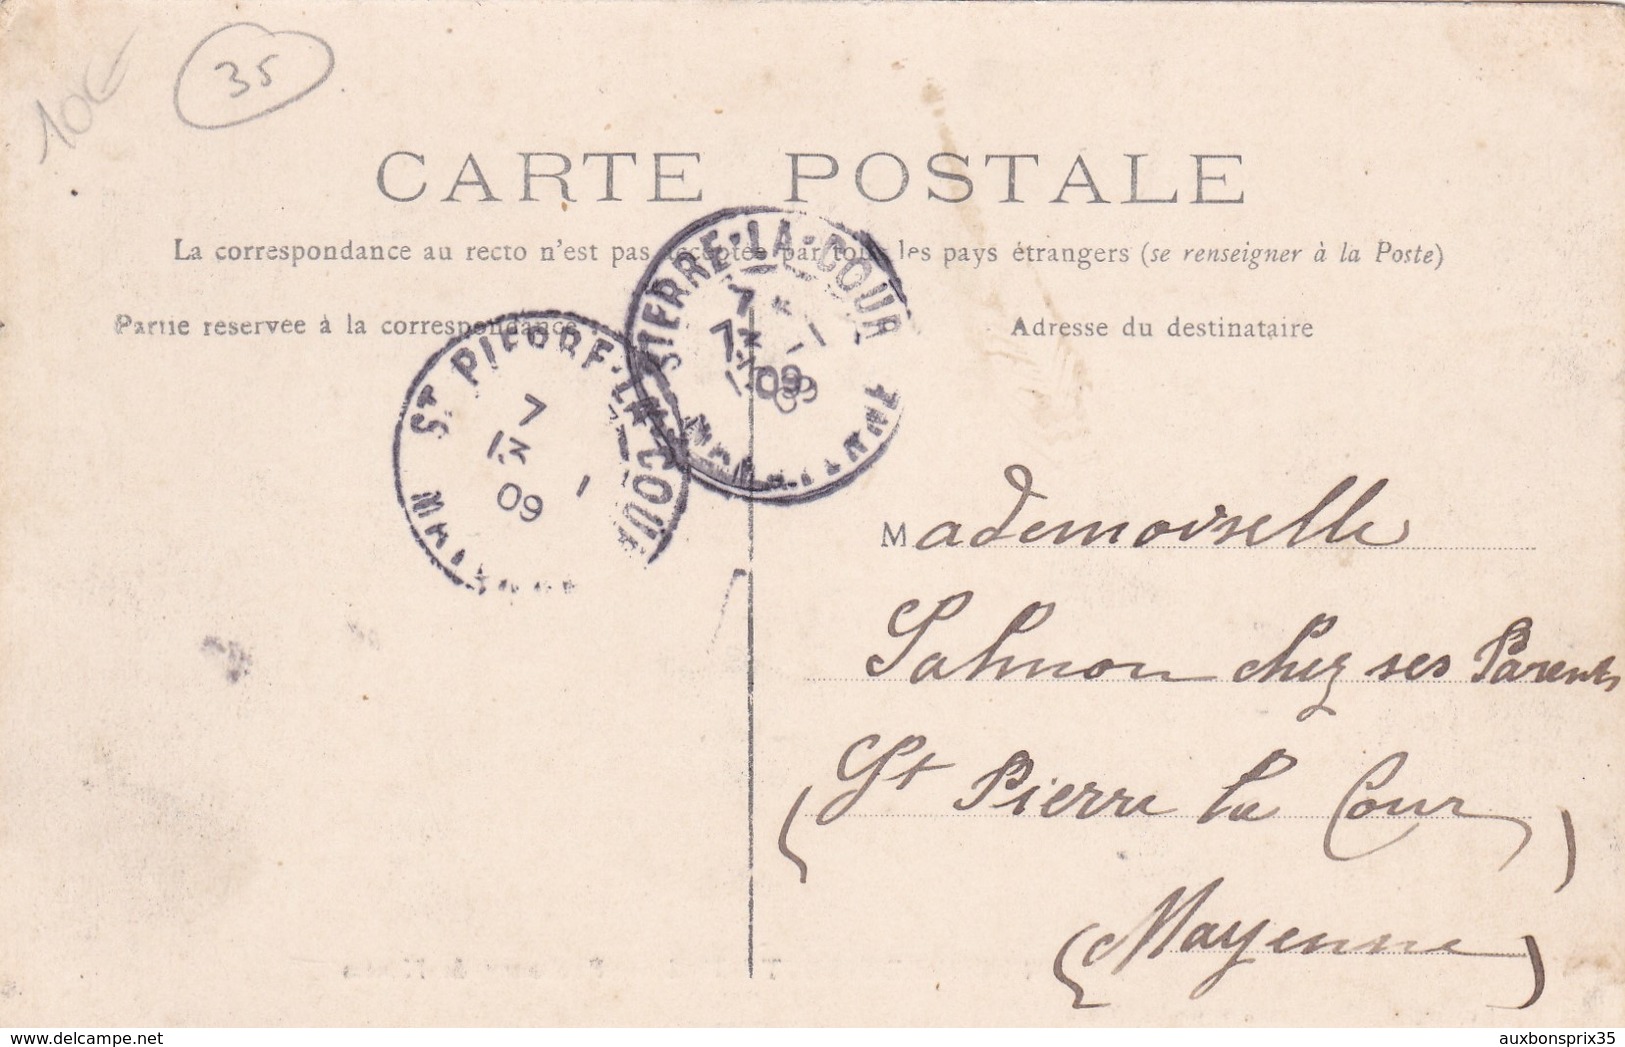 10€
35
CARTE POSTALE
La correspondance au recto n'est pas acceptée par tous les pays étrangers (se renseigner à la Poste)
Partie réservée à la correspondance
Adresse du destinataire
PIERRE-LA-COUR
7
09
ST PIERRE-LA-COUR
7
09
Mademoiselle
Salmon chez ses Parents
(St Pierre la Cour)
(Mayenne)
auxbonsprix35